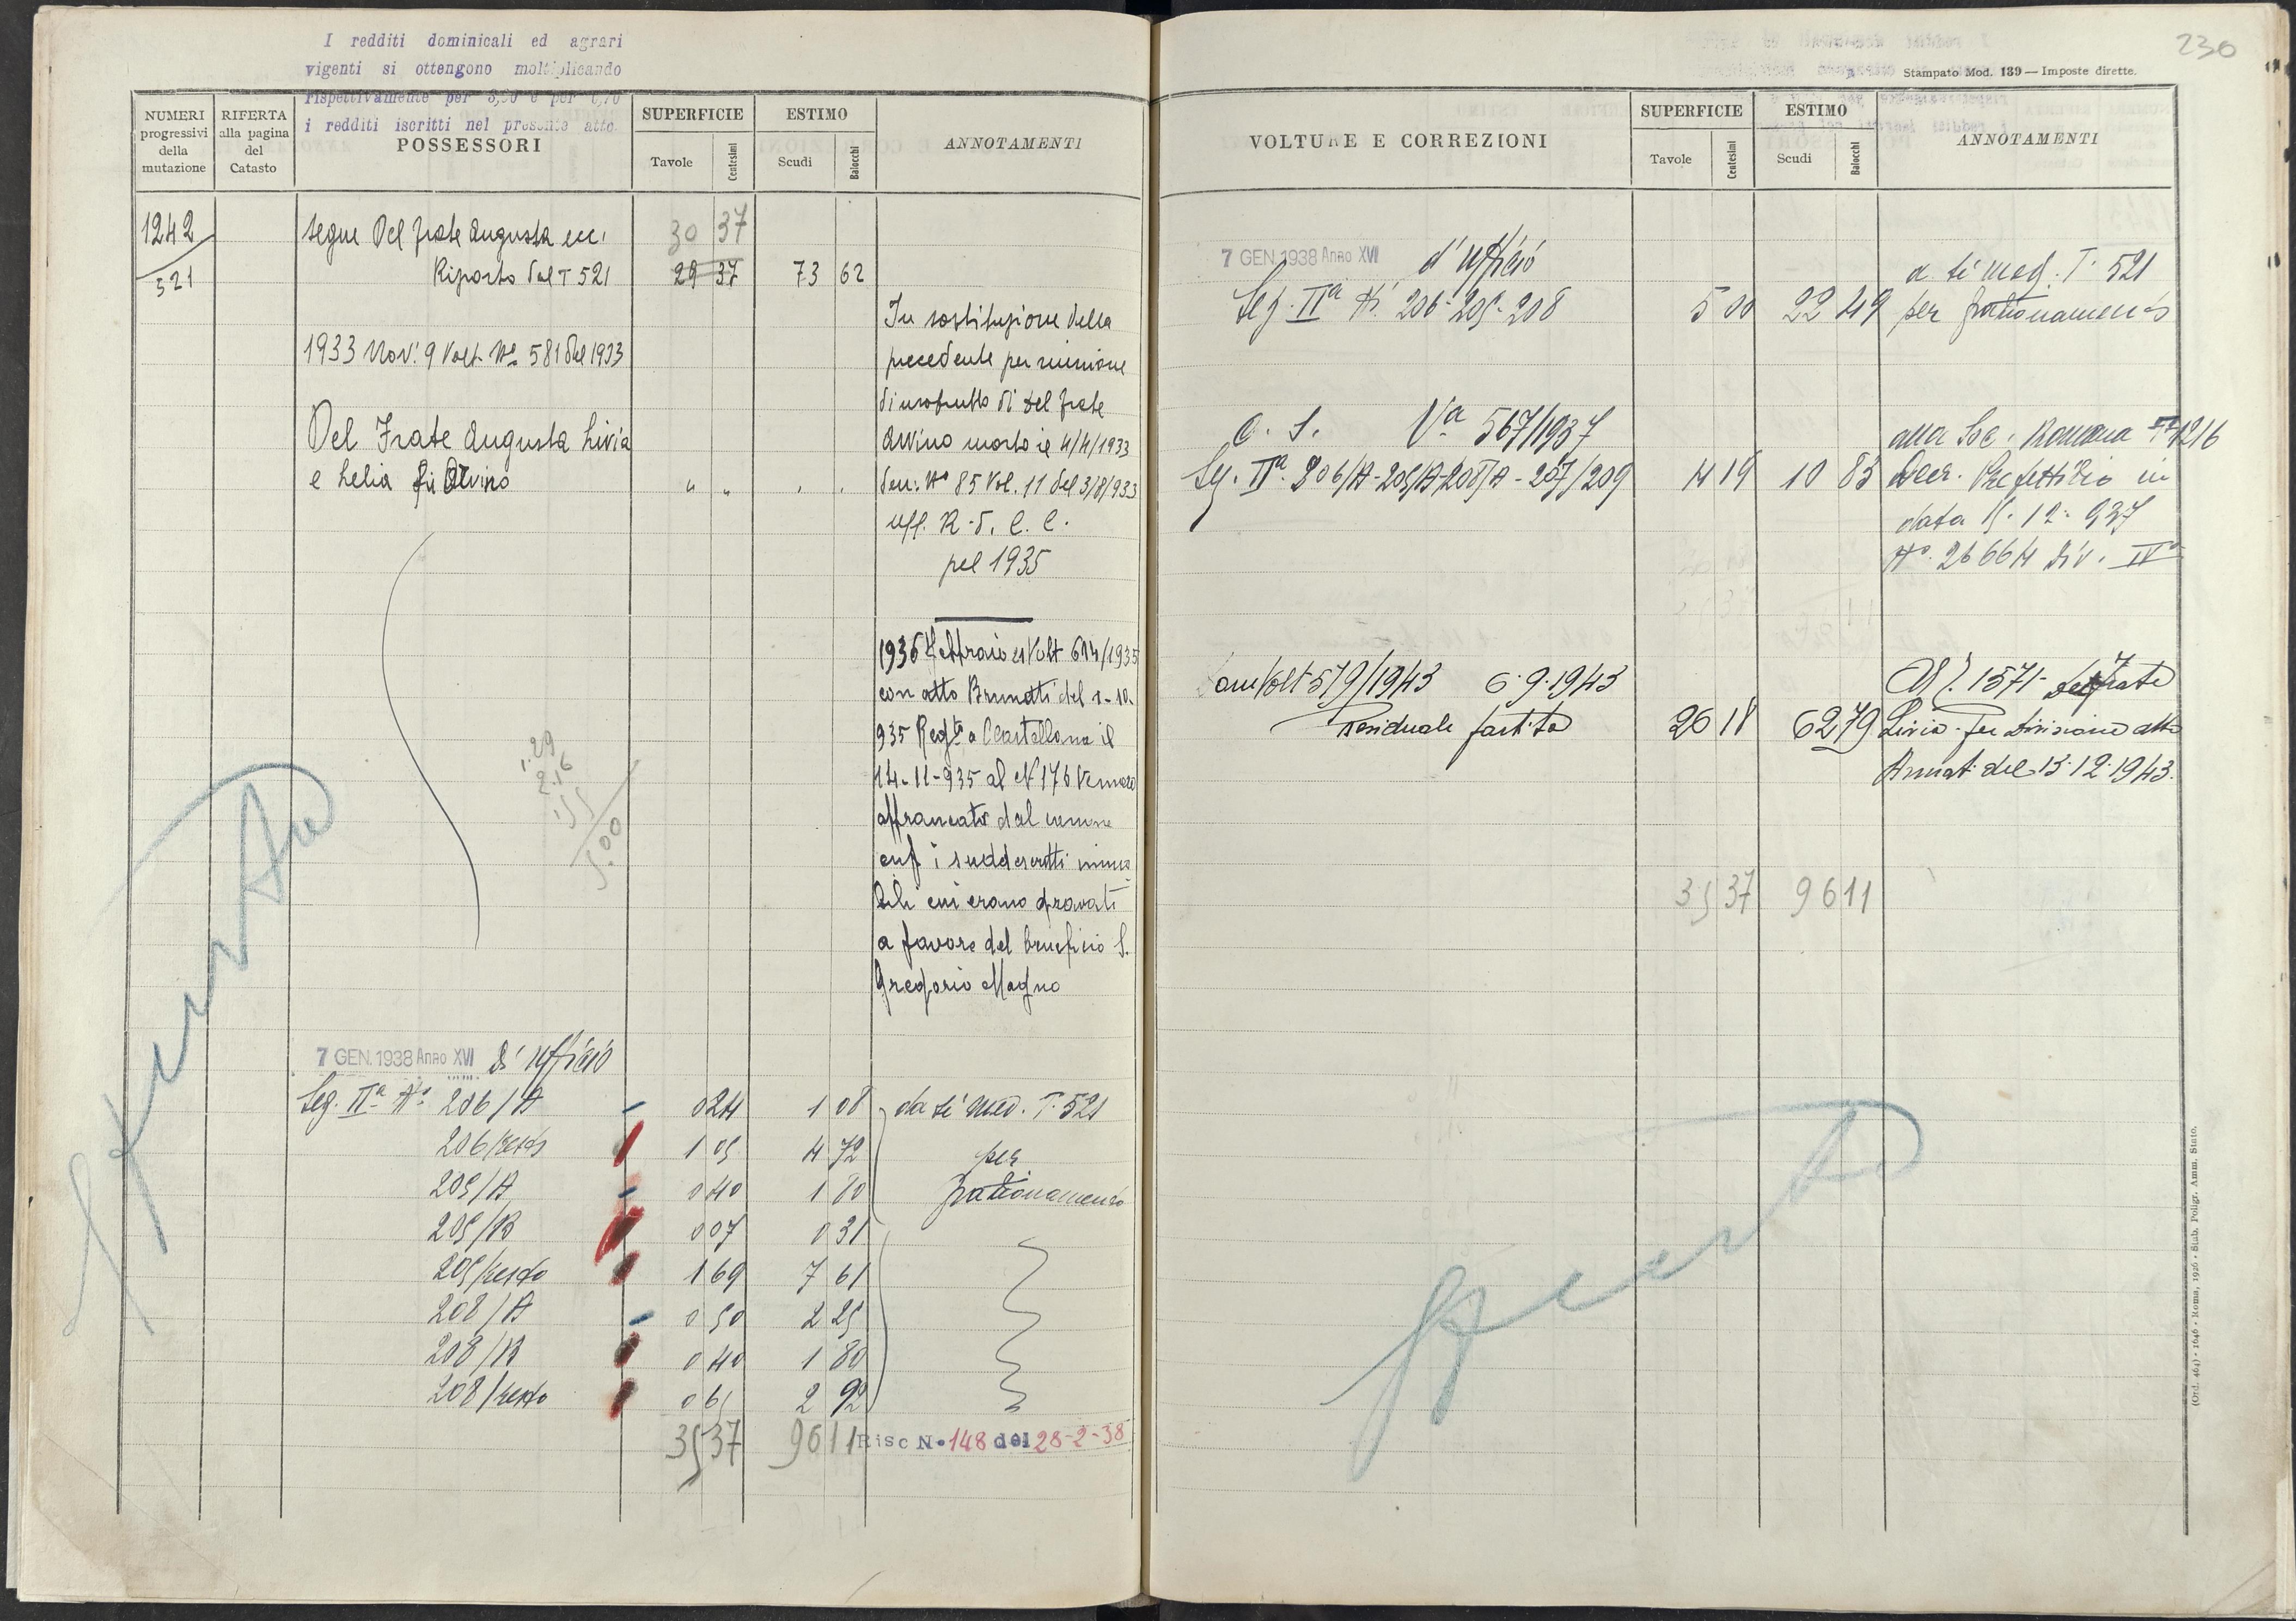 I redditi dominicali ed agrari
vigenti si ottengono moltiplicando
rispettivamente per 3,90 e per 6,70
i redditi iscritti nel presente atto.
NUMERI progressivi della mutazione
RIFERTA alla pagina del Catasto
POSSESSORI
SUPERFICIE
Tavole Centesimi
ESTIMO
Scudi Baiocchi
ANNOTAMENTI
1242
521
segue Del Frate Augusta ecc. 30 37
Riporto dal T 521 29 37 73 62
1933 Nov. 9 Volt. No 581 del 1933
Del Frate Augusta Livia
e Lelia fu Alvino " " " "
In sostituzione della
precedente per riunione
di usofrutto di Del Frate
Alvino morto il 4/4/1933
den: No 85 Vol. 11 del 3/8/933
uff. R. S. C. C.
pel 1935
1936 Febbraio 21 Volt 614/1935
con atto Brunatti del 1-10-
935 Regto a C Castellana il
14-11-935 al N 176 vennero
affrancato dal canone
enf i suddescritti immo
bili cui erano gravati
a favore del beneficio S.
Gregorio Magno
1.29
2.16
1.55
5.00
7 GEN. 1938 Anno XVI d'Ufficio
Sez. IIa No 206/A 0 24 1 08 da sé med. T. 521
206/resto 1 05 4 72 per
205/A 0 40 1 80 frazionamento
205/B 0 07 0 31
205/resto 1 69 7 61
208/A 0 50 2 25
208/B 0 40 1 80
208/resto 0 65 2 92
35 37 96 11 Risc N. 148 del 28-2-38
230
Stampato Mod. 139 — Imposte dirette.
VOLTURE E CORREZIONI
SUPERFICIE
Tavole Centesimi
ESTIMO
Scudi Baiocchi
ANNOTAMENTI
7 GEN 1938 Anno XVI d'Ufficio a sé med. T. 521
Sez. IIa N. 206-205-208 5 00 22 49 per frazionamento
C. S. Va 567/1937 alla Soc. Romana T 1216
Sez. IIa 206/A-205/A-208/A-207/209 4 19 10 83 Decr. Prefettizio in
data 15-12-937
No. 26664 Div. IVa
Volt 579/1943 6.9.1943 Al . 1571 - Del Frate
Residuale partita 26 18 62 79 Livia per divisione atto
del 13.12.1943.
35 37 96 11
(Ord. 464) - 1646 - Roma, 1926 - Stab. Poligr. Amm. Stato.